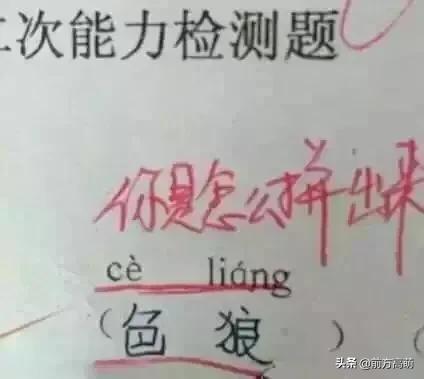 二次能力检测题
你是怎么拼出来
cè liáng
（色 狼）（
头条 @前方高萌